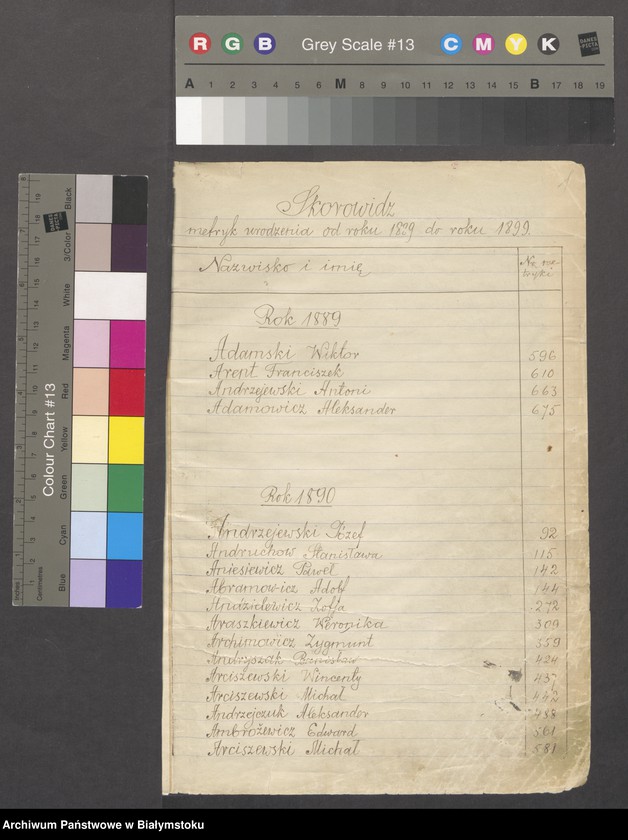 R G B Grey Scale #13 C M Y K
DANES
PICTA
.COM
A 1 2 3 4 5 6 M 8 9 10 11 12 13 14 15 B 17 18 19
Colour Chart #13
Blue Cyan Green Yellow Red Magenta White 3/Color Black
Inches
Centimetres
Skorowidz
metryk urodzenia od roku 1889 do roku 1899.
Nazwisko i imię
No me-
tryki
Rok 1889
Adamski Wiktor 596
Arent Franciszek 610
Andrzejewski Antoni 663
Adamowicz Aleksander 675
Rok 1890
Andrzejewski Józef 92
Andruchow Stanisława 115
Aniesiewicz Paweł 142
Abramowicz Adolf 144
Andzielewicz Zofja 272
Araszkiewicz Weronika 309
Archimowicz Zygmunt 359
Andryszak Bronisław 424
Arciszewski Wincenty 437
Arciszewski Michał 442
Andrzejczuk Aleksander 458
Ambrożewicz Edward 561
Arciszewski Michał 581
Archiwum Państwowe w Białymstoku